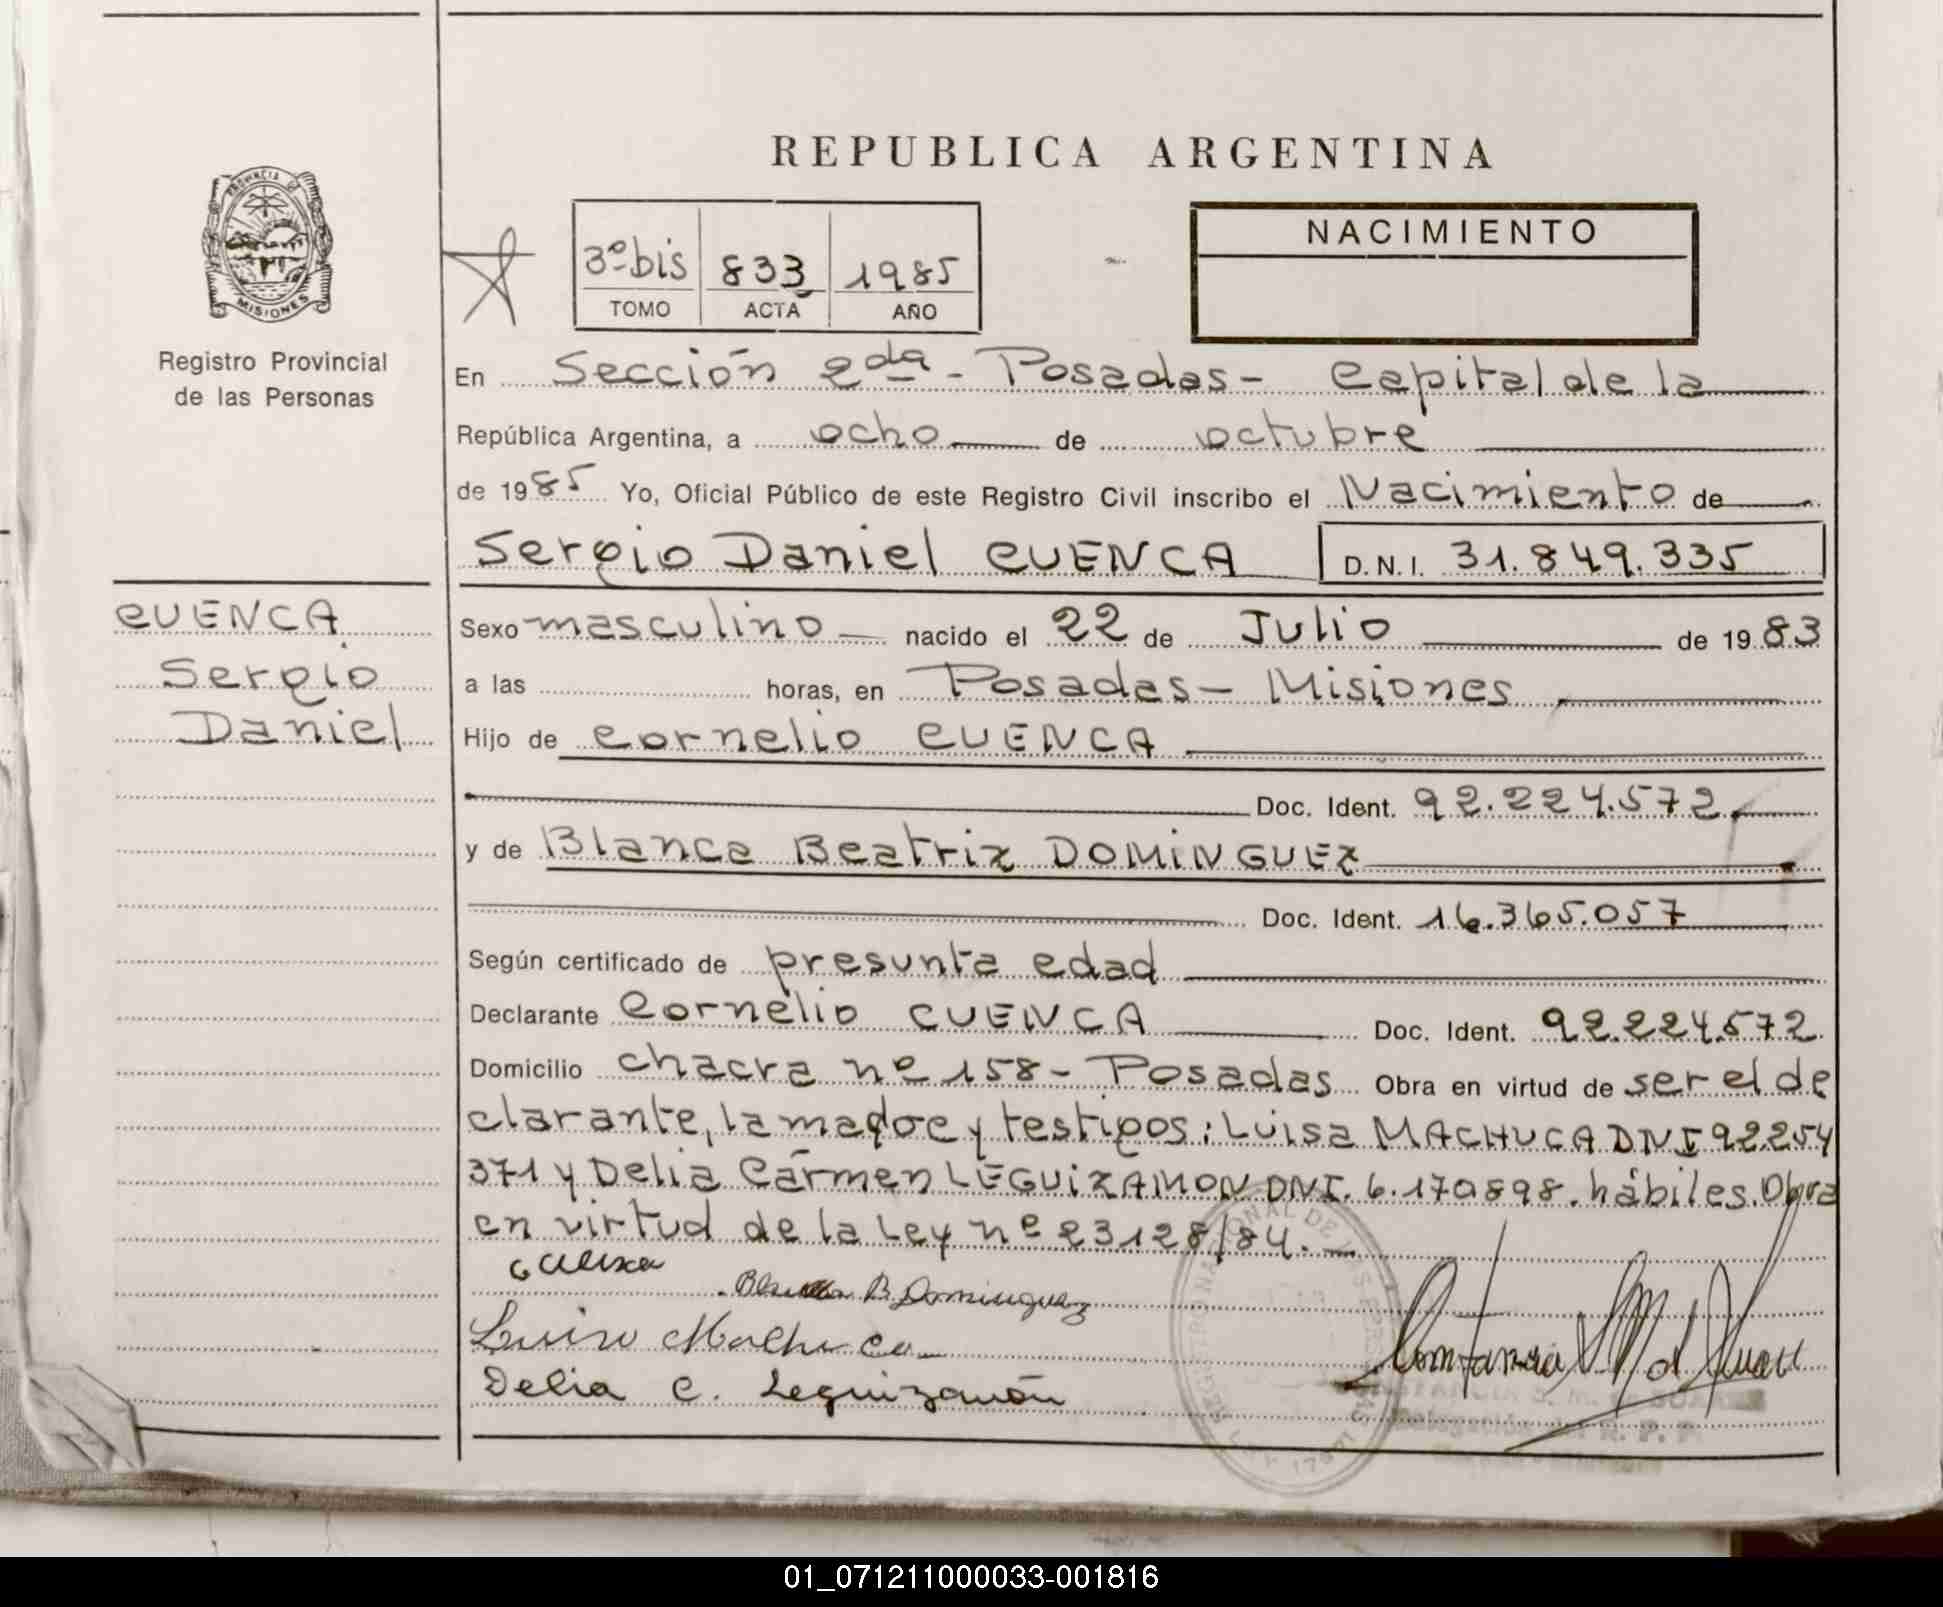 REPUBLICA ARGENTINA
PROVINCIA DE
MISIONES
Registro Provincial
de las Personas
3º bis 833 1985
TOMO ACTA AÑO
NACIMIENTO
En Sección 2da - Posadas - Capital de la
República Argentina, a ocho de octubre
de 1985 Yo, Oficial Público de este Registro Civil inscribo el Nacimiento de
Sergio Daniel CUENCA D.N.I. 31.849.335
CUENCA
Sergio
Daniel
Sexo masculino nacido el 22 de Julio de 1983
a las horas, en Posadas - Misiones
Hijo de Cornelio CUENCA
Doc. Ident. 92.224.572
y de Blanca Beatriz DOMINGUEZ
Doc. Ident. 16.365.057
Según certificado de presunta edad
Declarante Cornelio CUENCA Doc. Ident. 92.224.572
Domicilio chacra nº 158 - Posadas Obra en virtud de ser el de
clarante, la madre y testigos: Luisa MACHUCA DNI 92.254
371 y Delia Carmen LEGUIZAMON DNI. 6.170898. hábiles. Obra
en virtud de la Ley nº 23128/84.
B Dominguez
Luisa Machuca
Delia C. Leguizamón
01_071211000033-001816